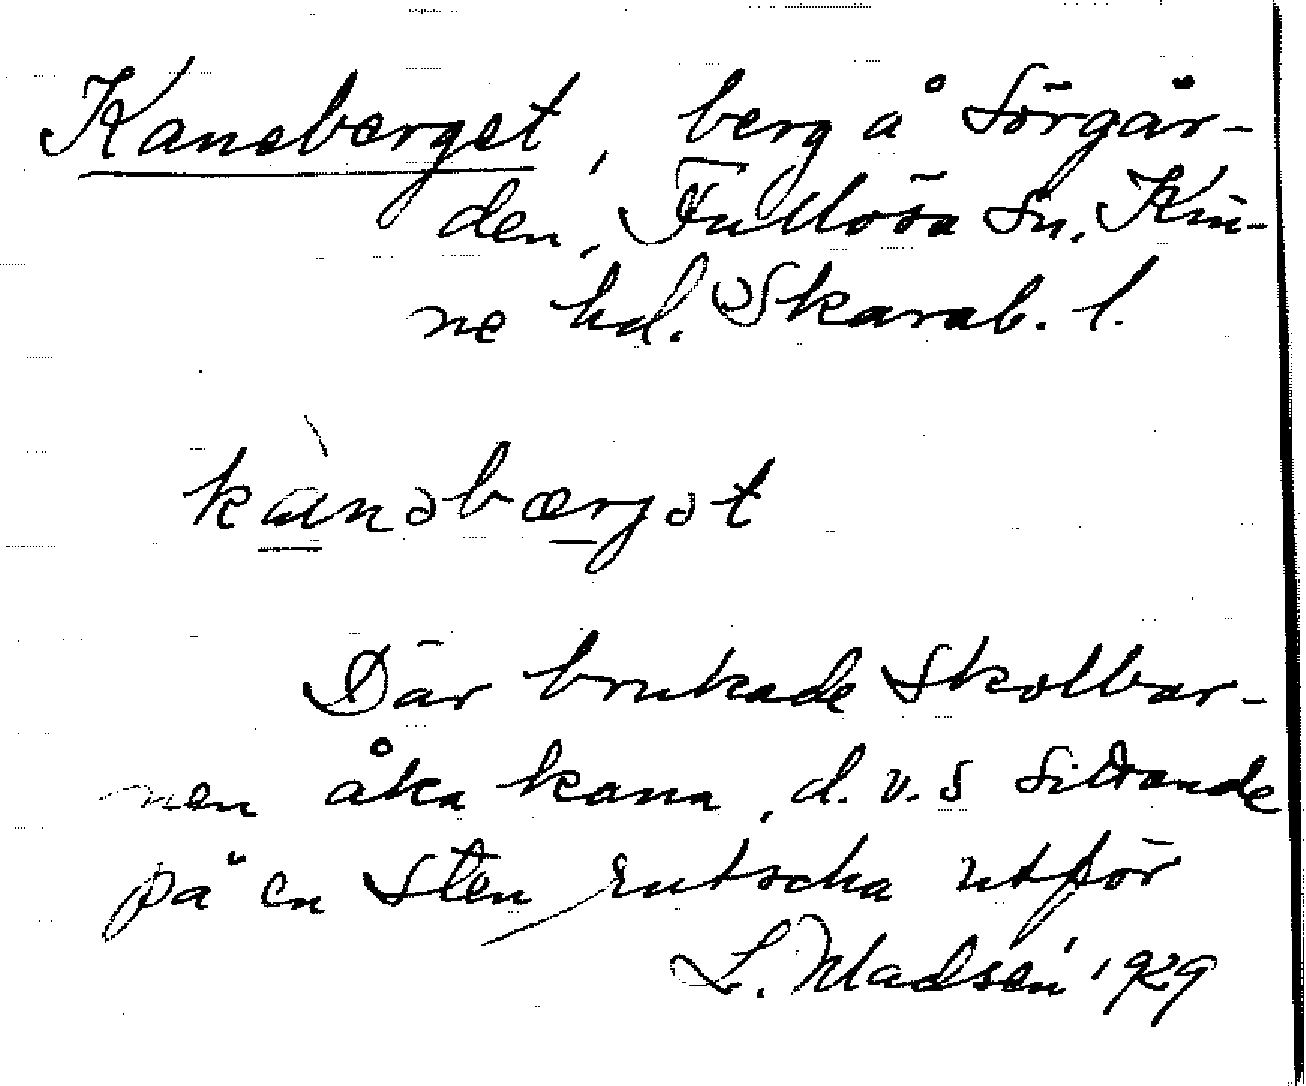 Kaneberget, berg å Sörgår-
den, Fullösa sn, Kin-
ne hd. Skarab. l.
kànəbærjət
Där brukade skolbar-
nen åka kana, d.v.s sittande
på en sten rutscha utför
L. Madsén 1929